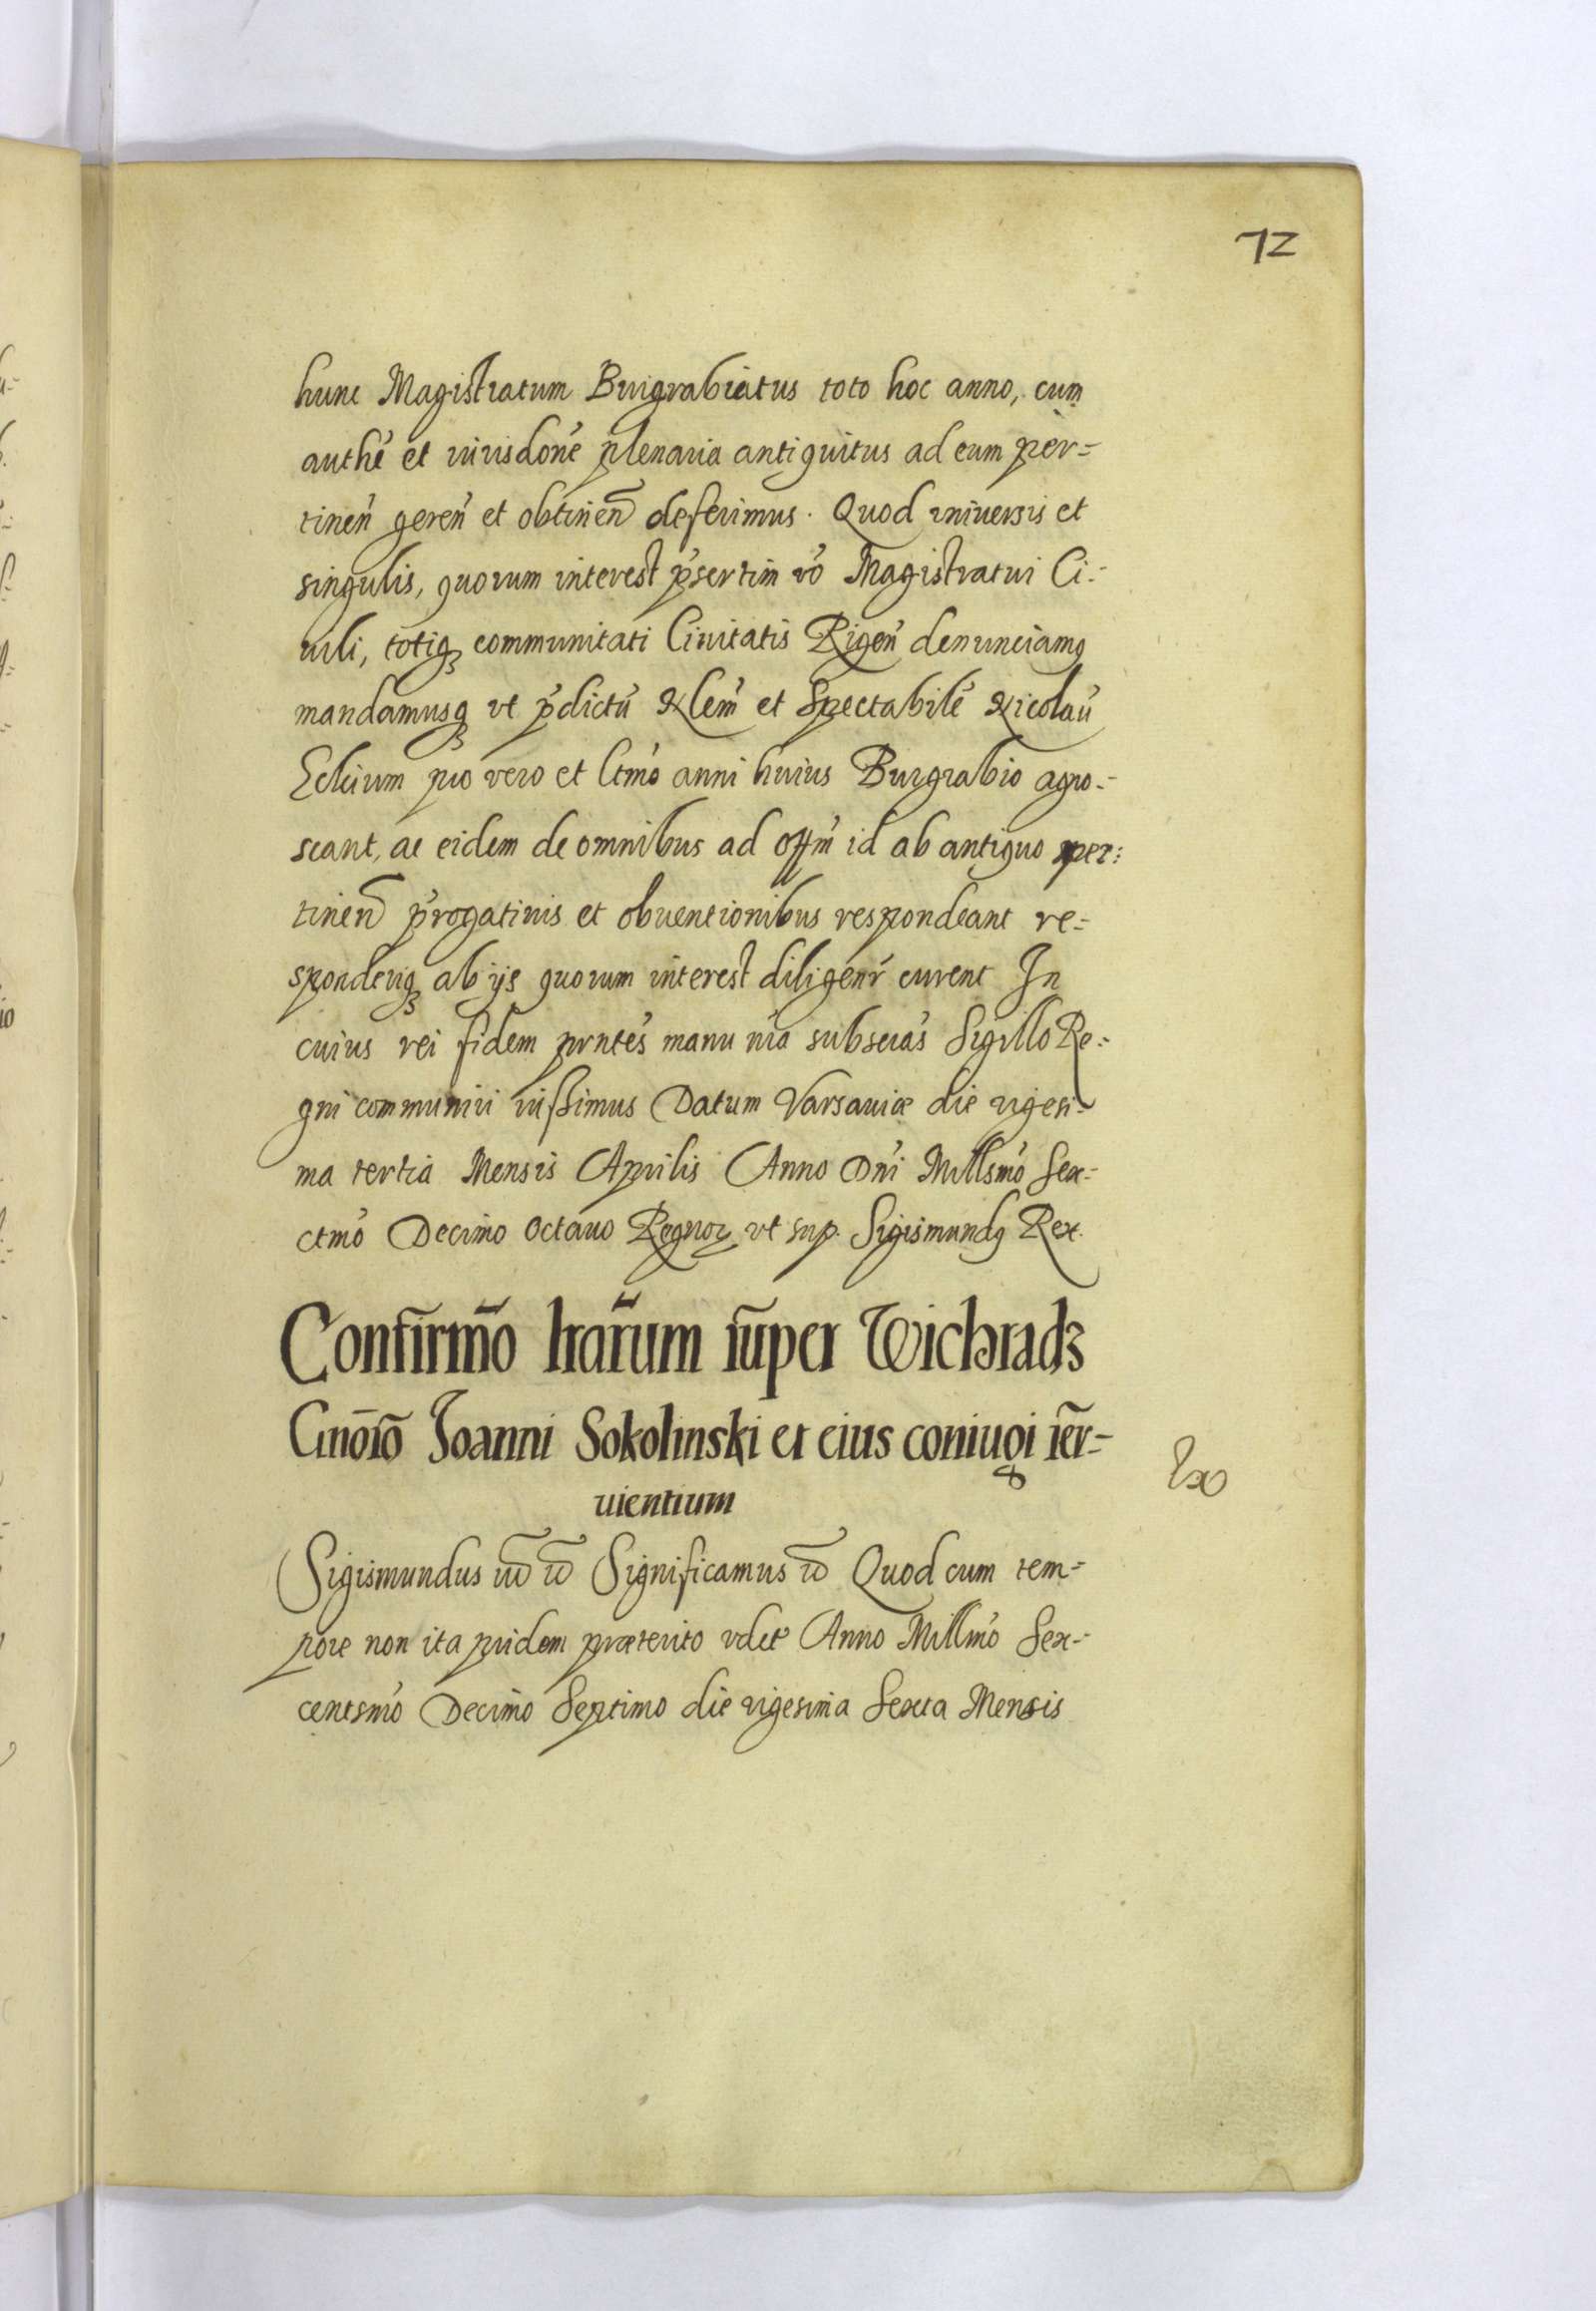 72
hunc Magistratum Burgrabiatus toto hoc anno, cum
authē et iurisdonē plenaria antiquitus ad eum per=
tineñ gereñ et obtineñ deferimus. Quod vniuersis et
singulis, quorum interest p̄sertim vō Magistratui Ci=
uili, totiq₃ communitati Ciuitatis Rigeñ denunciamꝰ
mandamusq₃ vt p̄dictū Nlem̄ et Spectabilē Nicolaū
Eckium pro vero et ltmō anni huius Burgrabio agno=
scant, ac eidem de omnibus ad offm̄ id ab antiquo per=
tineñ p̄rogatiuis et obuentionibus respondeant re=
sponderiq₃ ab ijs quorum interest diligenr̄ curent In
cuius rei fidem prntēs manu nrā subscrās Sigillo Re=
gni communiri iussimus Datum Varsauiæ die vigesi=
ma tertia Mensis Aprilis Anno Dnī Millsmō Sex=
ctmō Decimo Octauo Regnoꝝ vt sup. Sigismundꝰ Rex.
Confirm̄o lrār̄um suꝑer Wichradz
Gn̄oso Joanni Sokolinski et eius coniugi ser=
uientium
Sigismundus Significamus Quod cum tem=
pore non ita pridem præterito vdet Anno Millmō Sex=
centsmō Decimo Septimo die vigesima Sexta Mensis